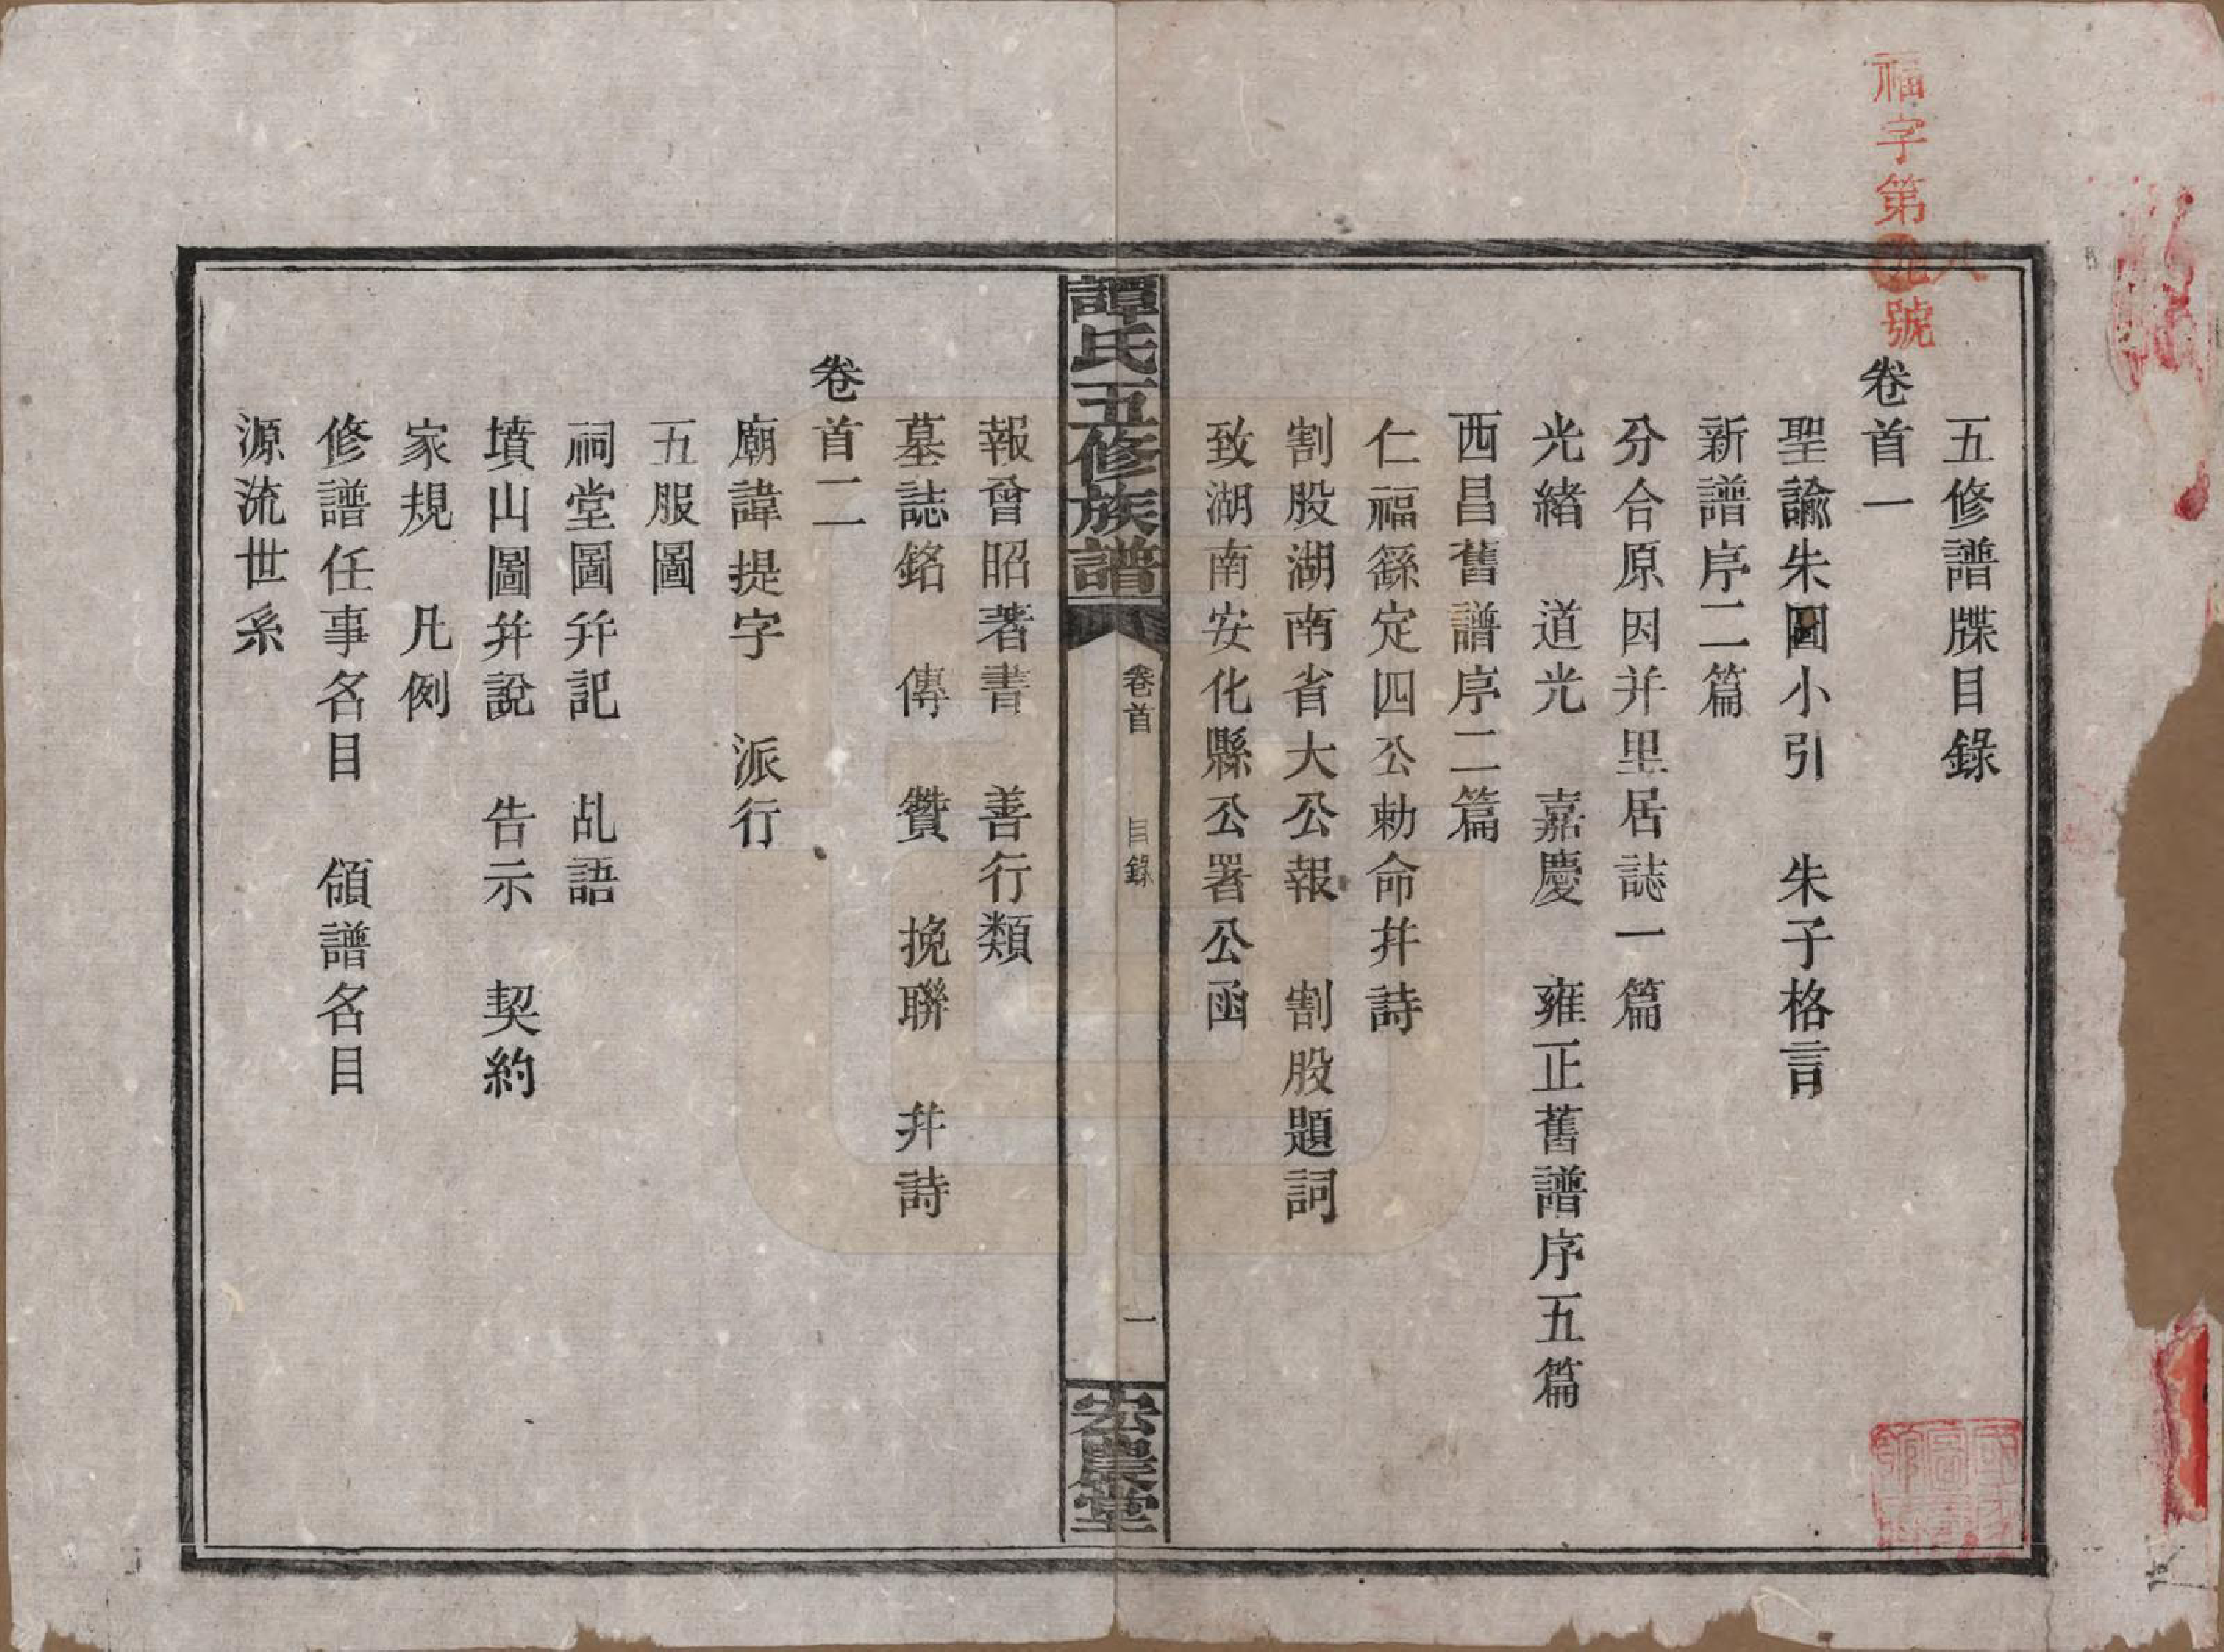 福字第號
八
五修譜牒目錄
卷首一
聖諭朱圖小引　朱子格言
新譜序二篇
分合原因并里居誌一篇
光緒　道光　嘉慶　雍正舊譜序五篇
西昌舊譜序二篇
仁福繇定四公勅命并詩
割股湖南省大公報　割股題詞
致湖南安化縣公署公函
譚氏五修族譜
卷首　目錄
一
宏農堂
報曾昭著書　善行類
墓誌銘　傳　贊　挽聯　并詩
卷首二
廟諱提字　派行
五服圖
祠堂圖并記　乩語
墳山圖并說　告示　契約
家規　凡例
修譜任事名目　領譜名目
源流世系